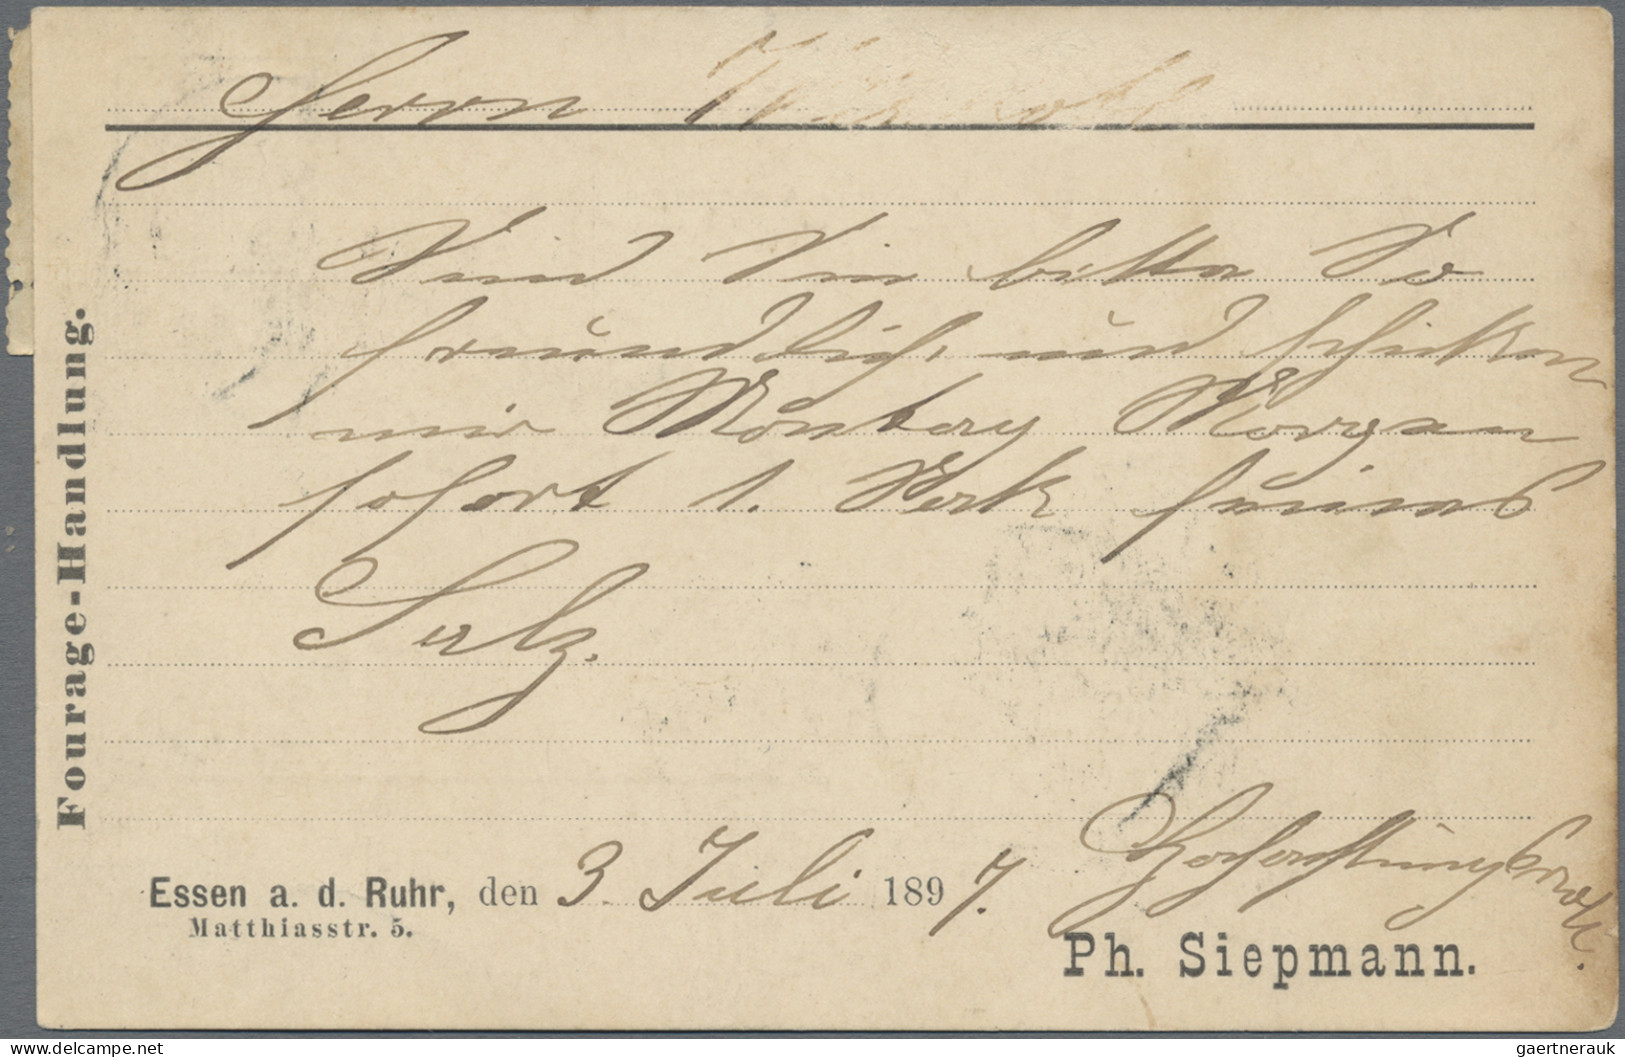 Herrn
Seien Sie bitte So
freundlich, und schicken
mir Montag Morgen
sofort 1. Sack feines
Salz.
Hochachtungsvoll.
Fourage-Handlung.
Essen a. d. Ruhr, den 3. Juli 1897.
Matthiasstr. 5.
Ph. Siepmann.
www.delcampe.net
gaertnerauk